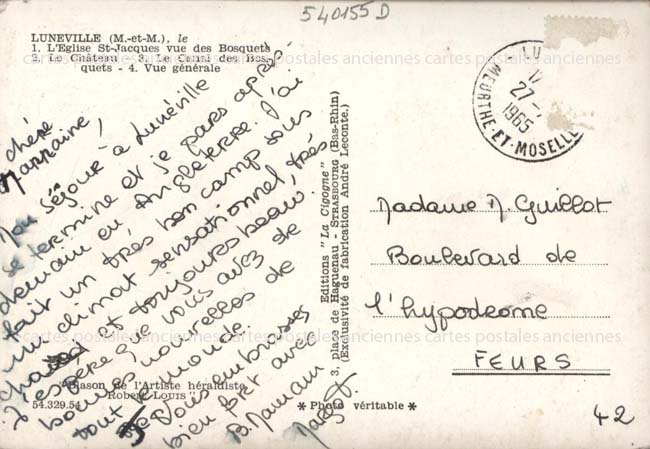 540155 D
LUNEVILLE (M.-et-M.), le
1. L'Eglise St-Jacques vue des Bosquets
2. Le Château - 3. Le Canal des Bos-
quets - 4. Vue générale
Chère
Marraine,
Mon séjour à Lunéville
se termine et je pars après-
demain en Angleterre. J'ai
fait un très bon camp sous
un climat sensationnel, très
chaud et toujours beau.
J'espère que vous avez de
bonnes nouvelles de
tout le monde.
Je vous embrasse
bien fort avec
B. Maman
Blason de l'Artiste héraldiste
Robert LOUIS"
54.329.54
Editions "La Cigogne"
3, place de Haguenau - STRASBOURG (Bas-Rhin)
(Exclusivité de fabrication André Leconte.)
* Photo véritable *
LU
17
27-
1965
MEURTHE-ET-MOSELLE
Madame M. Guillot
Boulevard de
l'hypodrome
FEURS
42
cartes postales anciennes cartes postales anciennes cartes postales anciennes